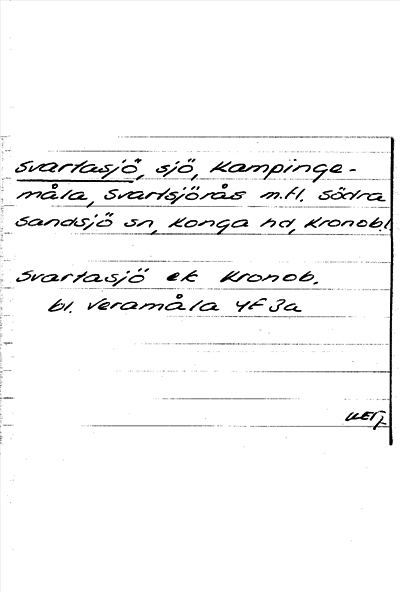 Svartasjö, sjö, Kampinge-
måla, Svartsjörås m.fl. Södra
Sandsjö sn, Konga hd, Kronob.l
Svartasjö ek Kronob.
bl. Veramåla 4f 3a